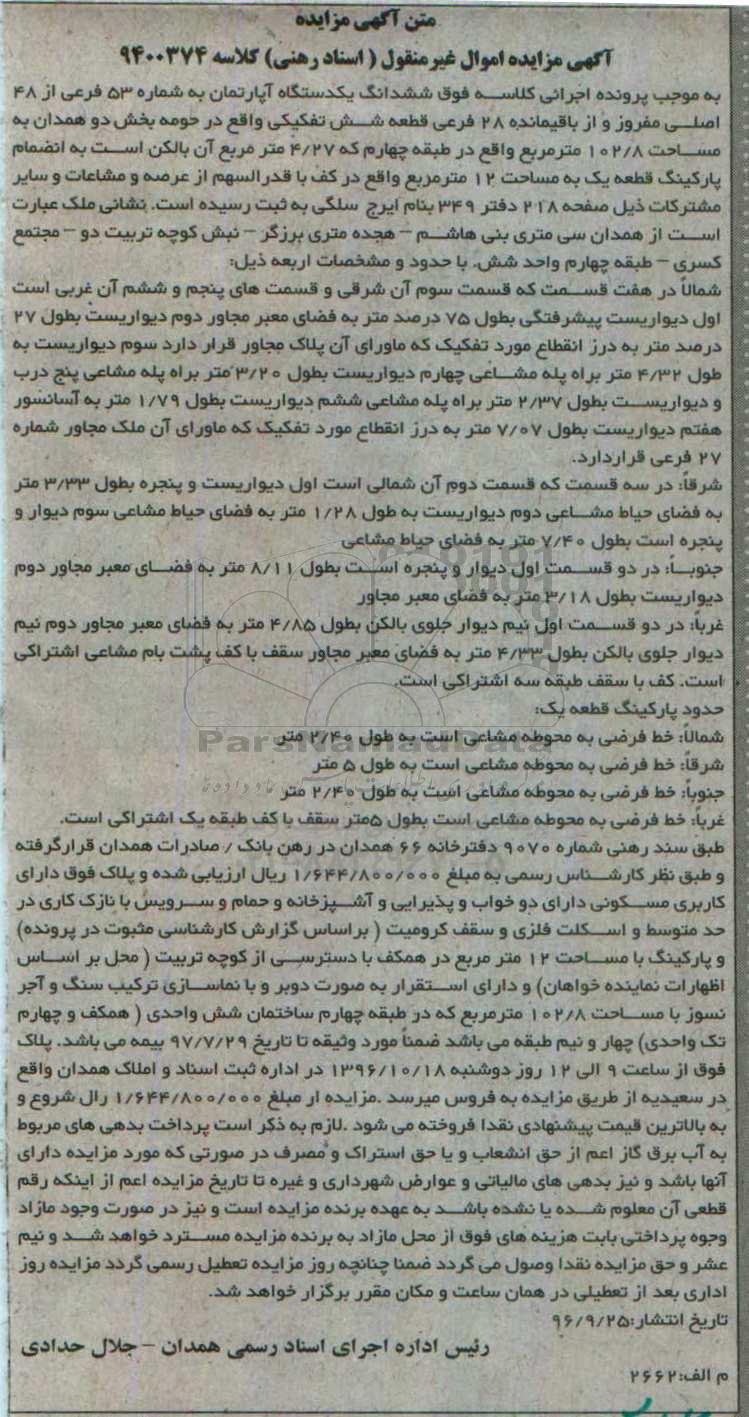 متن آگهی مزایده
آگهی مزایده اموال غیرمنقول ( اسناد رهنی) کلاسه ۹۴۰۰۳۷۴
به موجب پرونده اجرائی کلاسه فوق ششدانگ یکدستگاه آپارتمان به شماره ۵۳ فرعی از ۴۸
اصلی مفروز و از باقیمانده ۲۸ فرعی قطعه شش تفکیکی واقع در حومه بخش دو همدان به
مساحت ۱۰۲/۸ مترمربع واقع در طبقه چهارم که ۴/۲۷ متر مربع آن بالکن است به انضمام
پارکینگ قطعه یک به مساحت ۱۲ مترمربع واقع در کف با قدرالسهم از عرصه و مشاعات و سایر
مشترکات ذیل صفحه ۲۱۸ دفتر ۳۴۹ بنام ایرج سلگی به ثبت رسیده است. نشانی ملک عبارت
است از همدان سی متری بنی هاشم – هجده متری برزگر – نبش کوچه تربیت دو – مجتمع
کسری – طبقه چهارم واحد شش. با حدود و مشخصات اربعه ذیل:
شمالاً در هفت قسمت که قسمت سوم آن شرقی و قسمت های پنجم و ششم آن غربی است
اول دیواریست پیشرفتگی بطول ۷۵ درصد متر به فضای معبر مجاور دوم دیواریست بطول ۲۷
درصد متر به درز انقطاع مورد تفکیک که ماورای آن پلاک مجاور قرار دارد سوم دیواریست به
طول ۴/۳۲ متر براه پله مشاعی چهارم دیواریست بطول ۳/۲۰ متر براه پله مشاعی پنج درب
و دیواریست بطول ۲/۳۷ متر براه پله مشاعی ششم دیواریست بطول ۱/۷۹ متر به آسانسور
هفتم دیواریست بطول ۷/۰۷ متر به درز انقطاع مورد تفکیک که ماورای آن ملک مجاور شماره
۲۷ فرعی قراردارد.
شرقاً: در سه قسمت که قسمت دوم آن شمالی است اول دیواریست و پنجره بطول ۳/۳۳ متر
به فضای حیاط مشاعی دوم دیواریست به طول ۱/۲۸ متر به فضای حیاط مشاعی سوم دیوار و
پنجره است بطول ۷/۴۰ متر به فضای حیاط مشاعی
جنوباً: در دو قسمت اول دیوار و پنجره است بطول ۸/۱۱ متر به فضای معبر مجاور دوم
دیواریست بطول ۳/۱۸ متر به فضای معبر مجاور
غرباً: در دو قسمت اول نیم دیوار جلوی بالکن بطول ۴/۸۵ متر به فضای معبر مجاور دوم نیم
دیوار جلوی بالکن بطول ۴/۳۳ متر به فضای معبر مجاور سقف با کف پشت بام مشاعی اشتراکی
است. کف با سقف طبقه سه اشتراکی است.
حدود پارکینگ قطعه یک:
شمالاً: خط فرضی به محوطه مشاعی است به طول ۲/۴۰ متر
ParsNamadData
شرقاً: خط فرضی به محوطه مشاعی است به طول ۵ متر
جنوباً: خط فرضی به محوطه مشاعی است به طول ۲/۴۰ متر
غرباً: خط فرضی به محوطه مشاعی است بطول ۵متر سقف با کف طبقه یک اشتراکی است.
طبق سند رهنی شماره ۹۰۷۰ دفترخانه ۶۶ همدان در رهن بانک / صادرات همدان قرارگرفته
و طبق نظر کارشناس رسمی به مبلغ ۱/۶۴۴/۸۰۰/۰۰۰ ریال ارزیابی شده و پلاک فوق دارای
کاربری مسکونی دارای دو خواب و پذیرایی و آشپزخانه و حمام و سرویس با نازک کاری در
حد متوسط و اسکلت فلزی و سقف کرومیت ( براساس گزارش کارشناسی مثبوت در پرونده)
و پارکینگ با مساحت ۱۲ متر مربع در همکف با دسترسی از کوچه تربیت ( محل بر اساس
اظهارات نماینده خواهان) و دارای استقرار به صورت دوبر و با نماسازی ترکیب سنگ و آجر
نسوز با مساحت ۱۰۲/۸ مترمربع که در طبقه چهارم ساختمان شش واحدی ( همکف و چهارم
تک واحدی) چهار و نیم طبقه می باشد ضمناً مورد وثیقه تا تاریخ ۹۷/۷/۲۹ بیمه می باشد. پلاک
فوق از ساعت ۹ الی ۱۲ روز دوشنبه ۱۳۹۶/۱۰/۱۸ در اداره ثبت اسناد و املاک همدان واقع
در سعیدیه از طریق مزایده به فروس میرسد .مزایده ار مبلغ ۱/۶۴۴/۸۰۰/۰۰۰ رال شروع و
به بالاترین قیمت پیشنهادی نقدا فروخته می شود .لازم به ذکر است پرداخت بدهی های مربوط
به آب برق گاز اعم از حق انشعاب و یا حق استراک و مصرف در صورتی که مورد مزایده دارای
آنها باشد و نیز بدهی های مالیاتی و عوارض شهرداری و غیره تا تاریخ مزایده اعم از اینکه رقم
قطعی آن معلوم شده یا نشده باشد به عهده برنده مزایده است و نیز در صورت وجود مازاد
وجوه پرداختی بابت هزینه های فوق از محل مازاد به برنده مزایده مسترد خواهد شد و نیم
عشر و حق مزایده نقدا وصول می گردد ضمنا چنانچه روز مزایده تعطیل رسمی گردد مزایده روز
اداری بعد از تعطیلی در همان ساعت و مکان مقرر برگزار خواهد شد.
تاریخ انتشار:۹۶/۹/۲۵
رئیس اداره اجرای اسناد رسمی همدان – جلال حدادی
م الف:۲۶۶۲